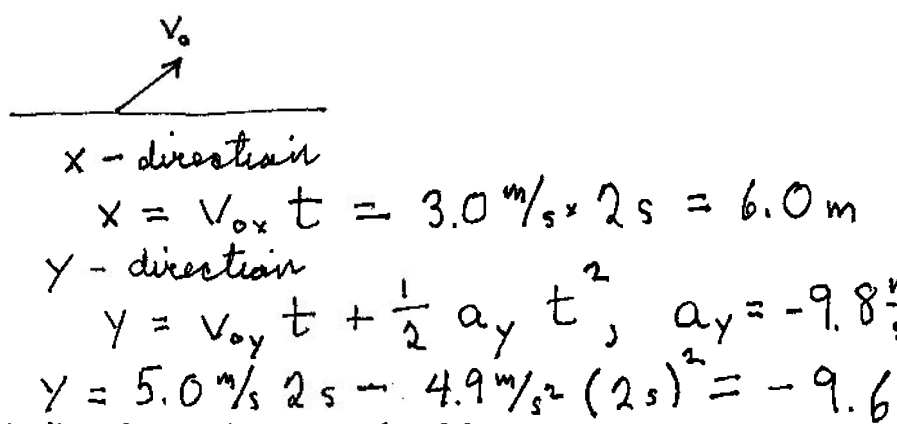 V₀
x - direction
x = V₀ₓ t = 3.0 m/s × 2 s = 6.0 m
Y - direction
Y = V₀y t + 1/2 ay t², ay = -9.8
Y = 5.0 m/s 2 s - 4.9 m/s² (2 s)² = - 9.6